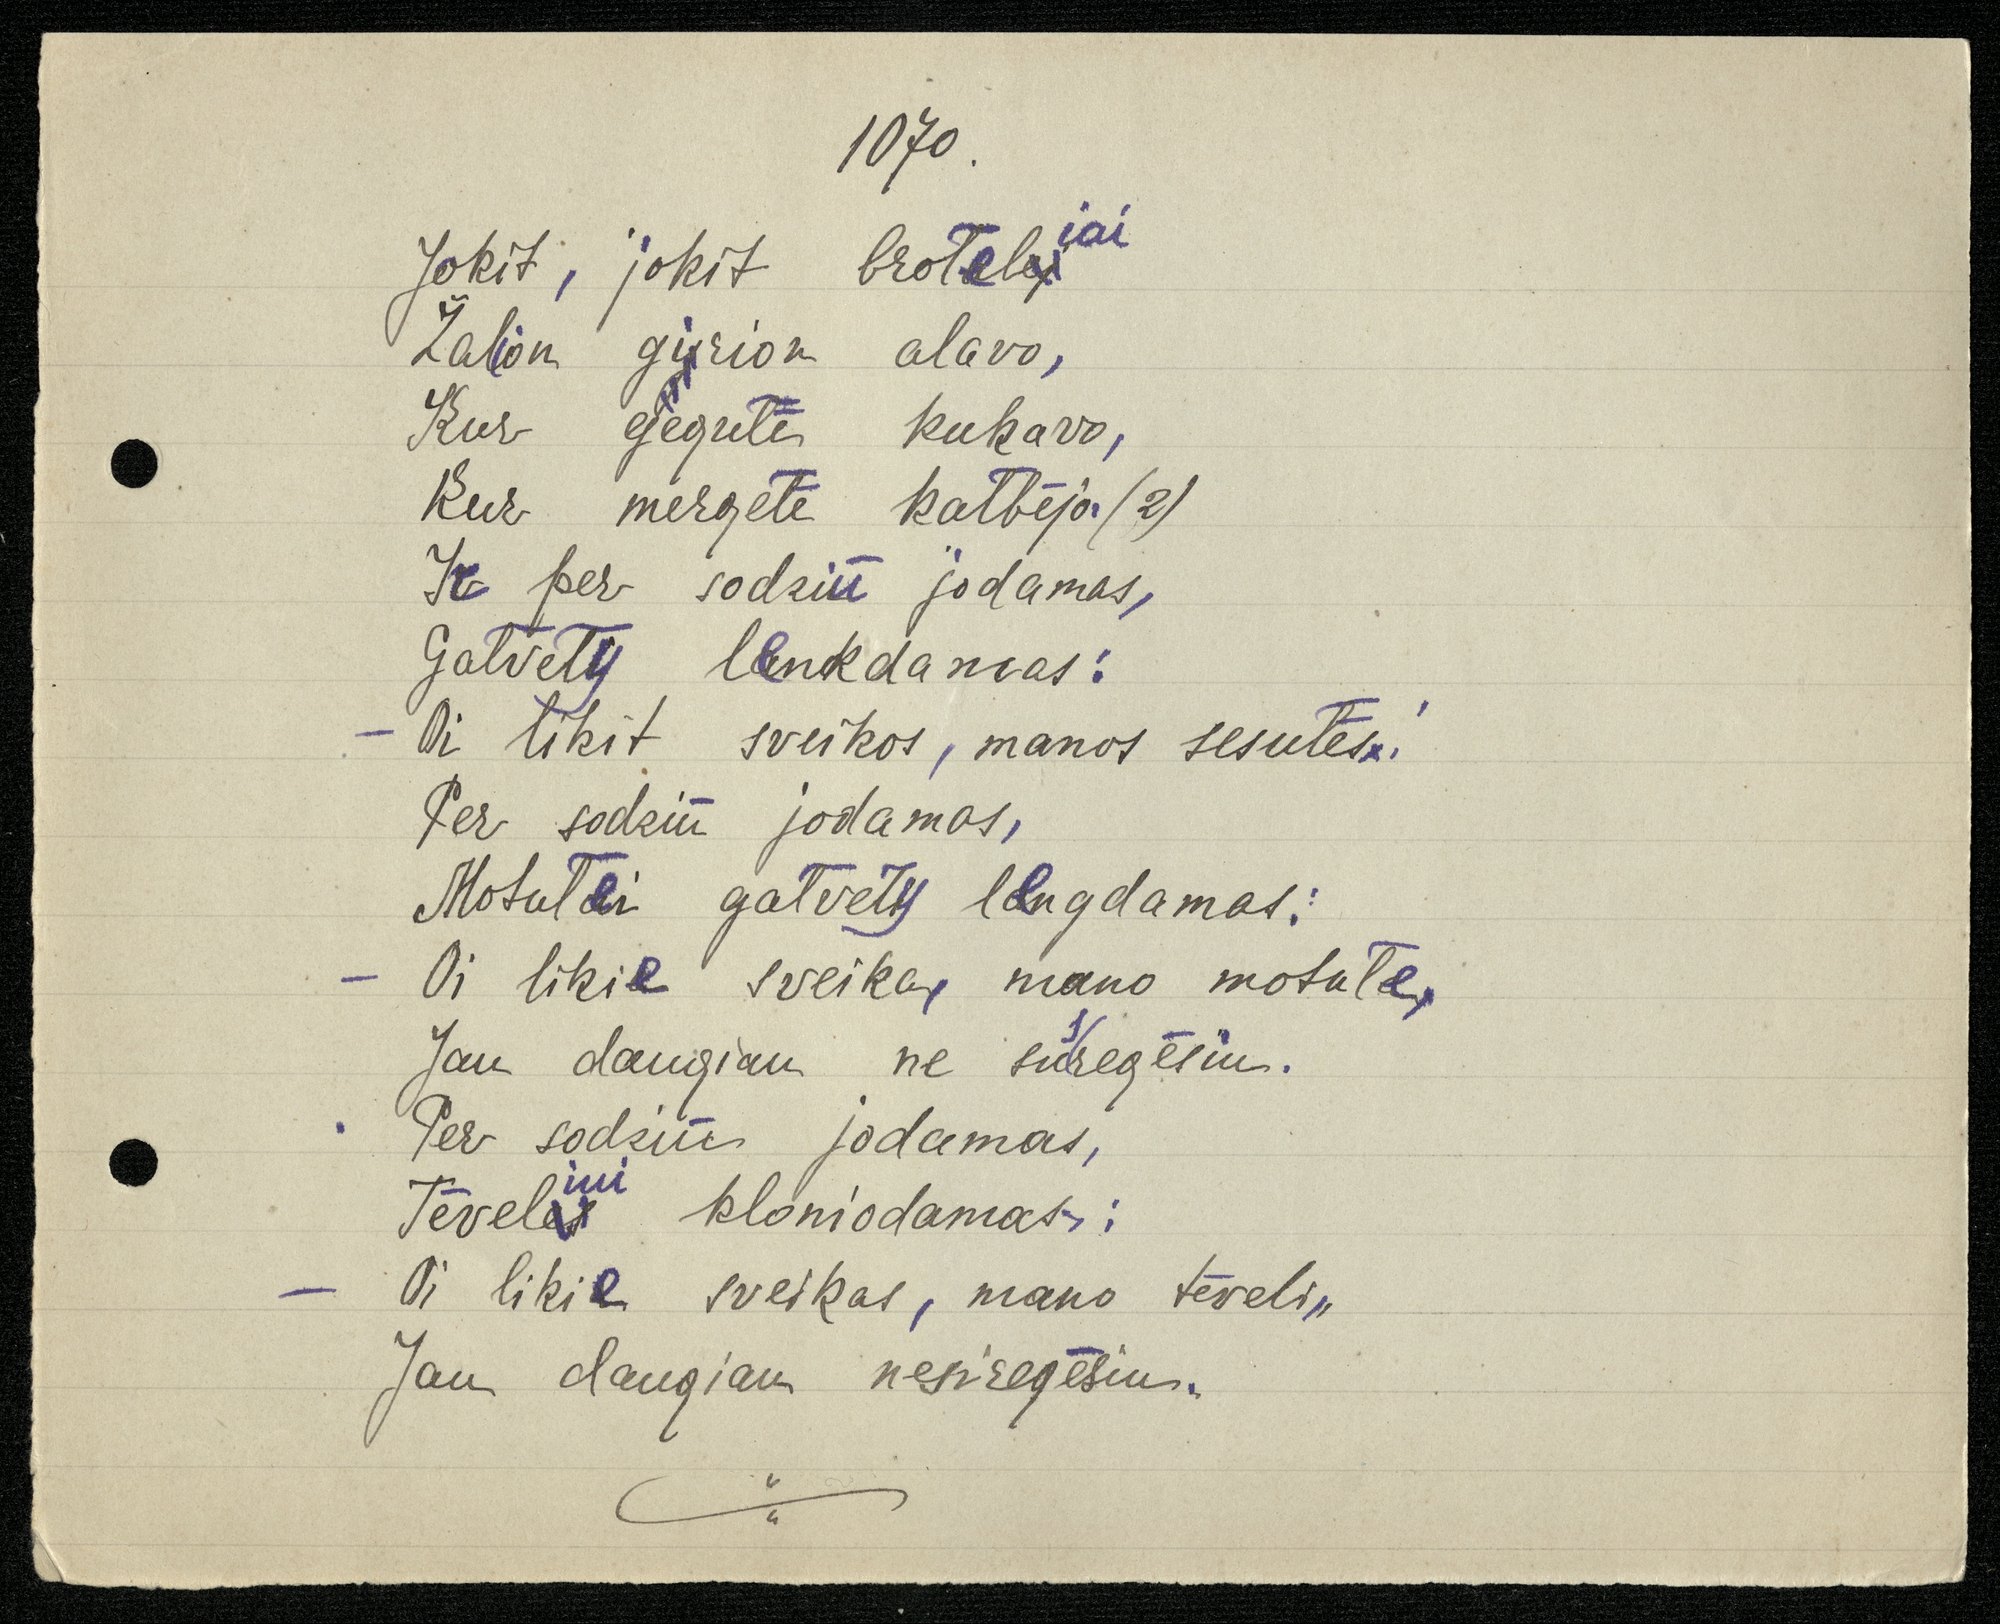 1070.
Jokit, jokit broteliai
Žalion girion alavo,
Kur gegutė kukavo,
Kur mergėtė kalbėjo. (2)
Ir per sodžiū jodamas,
Gatvėty lenkdamas:
– Oi likit sveikos, manos sesutės!
Per sodžiū jodamas,
Motutei gatvėty lengdamas:
– Oi likie sveika, mano motute,
Jau daugiau ne siregėsiu.
Per sodžiū jodamas,
Tėveliui kloniodamas:
– Oi likie sveikas, mano tėveli,,
Jau daugiau nesiregėsiu.